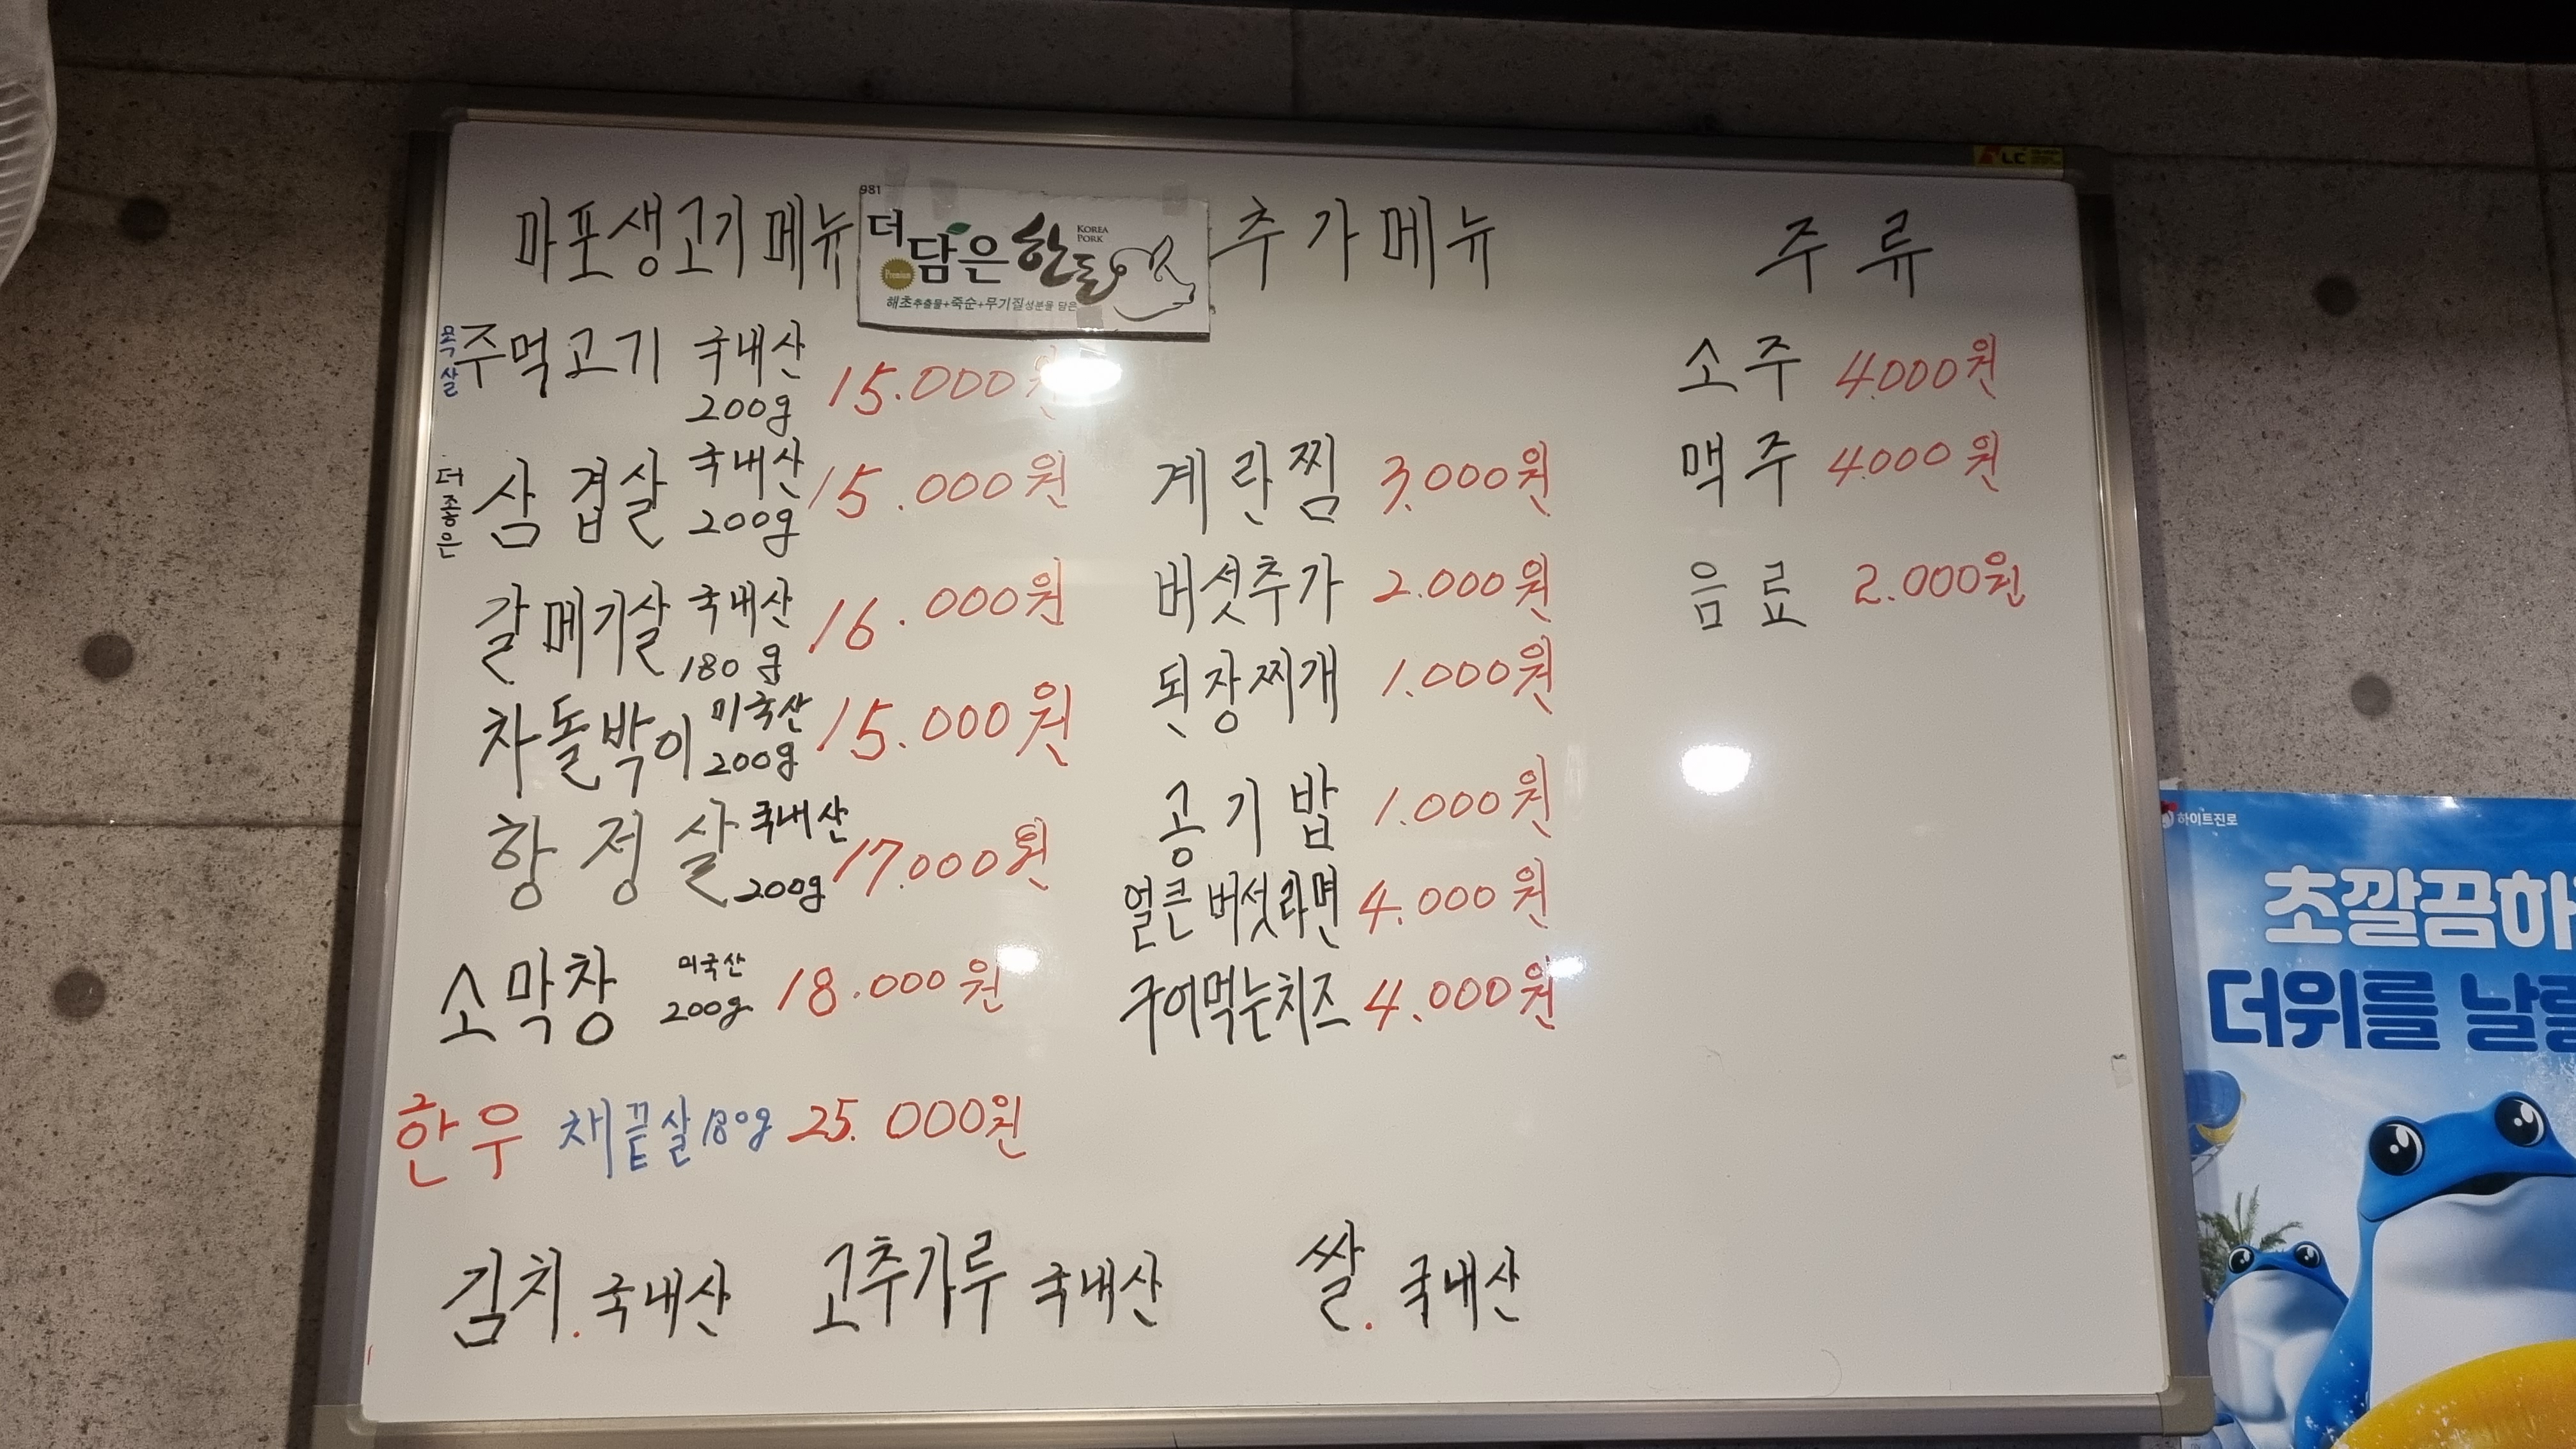 마포생고기메뉴
981
더 담은 한돈
KOREA PORK
Premium
해초추출물+죽순+무기질성분을 담은
목살 주먹고기 국내산 200g 15.000원
더 좋은 삼겹살 국내산 200g 15.000원
갈메기살 국내산 180g 16.000원
차돌박이 미국산 200g 15.000원
항정살 국내산 200g 17.000원
소막창 미국산 200g 18.000원
한우 채끝살 180g 25.000원
추가메뉴
계란찜 3.000원
버섯추가 2.000원
된장찌개 1.000원
공기밥 1.000원
얼큰버섯라면 4.000원
구어먹는치즈 4.000원
주류
소주 4.000원
맥주 4.000원
음료 2.000원
김치.국내산 고추가루 국내산 쌀.국내산
하이트진로
초깔끔하
더위를 날릴